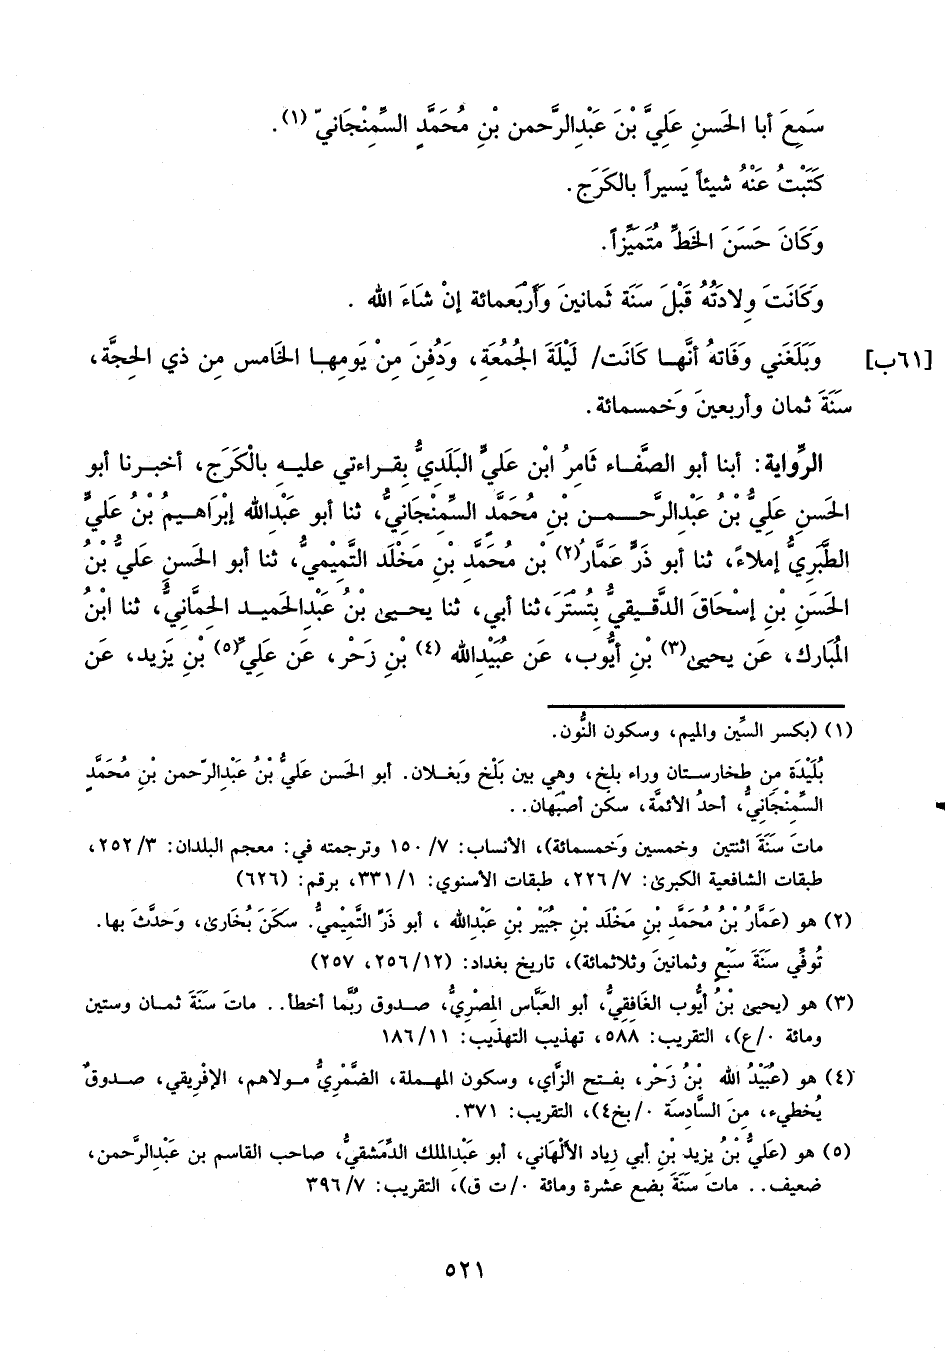 سَمِعَ أبا الحَسنِ عَلِيَّ بْنَ عَبْدِالرَّحمن بْنِ مُحَمَّدٍ السِّمِنْجَانيّ (١).
كَتَبْتُ عَنْهُ شيئاً يَسيراً بالكَرَجِ.
وكَانَ حَسَنَ الخَطِّ مُتَمَيِّزاً.
وكَانَتَ وِلادَتُهُ قَبْلَ سَنَةِ ثَمانينَ وَأَرْبَعمائة إنْ شَاءَ الله .
[٦١ب] وبَلَغَني وَفَاتهُ أنَّهـا كَانَت/ لَيْلَةَ الجُمُعَةِ، ودُفِنَ مِنْ يَومِهـا الخَامس مِن ذي الحِجَّة،
سَنَةَ ثمان وأربعينَ وخَمسمائة.
الرِّواية: أبنا أبو الصفَّاء ثَامرُ ابْن عَليٍّ البَلَديُّ بِقراءتي عليهِ بالْكَرَجِ، أخبرنا أبو
الحَسنِ عَليُّ بْنُ عَبْدِالرَّحمن بْنِ مُحَمَّدٍ السِّمِنْجَانيُّ، ثنا أبو عَبْدِالله إبْرَاهيمُ بْنُ عَليٍّ
الطَّبَريُّ إملاءً، ثنا أبو ذَرٍّ عَمَّارُ(٢) بْن مُحَمَّدِ بْنِ مَخْلَد التَّميْميُّ، ثنا أبو الحَسنِ عَليُّ بْنُ
الحَسَنِ بْنِ إسْحَاقَ الدَّقيقيُّ بِتُسْتَرَ،ثنا أبي، ثنا يحيىٰ بْنُ عَبْدِالحَميد الحِمَّانيُّ، ثنا ابْنُ
المُبَارك، عَن يحيىٰ(٣) بْنِ أيُّوب، عَن عُبَيْدِالله (٤) بْنِ زَحْر، عَن عَليِّ(٥) بْنِ يَزيد، عَن
(١) (بكسر السِّين والميم، وسكون النُّون.
بُلَيْدَة مِن طخارستان وراء بلخ، وهي بين بَلْخ وبَغـلان. أبو الحَسن عَليُّ بْنُ عَبْدِالرَّحمن بْنِ مُحَمَّدٍ
السِّمِنْجَانيُّ، أحدُ الأئمَّة، سكَن أصْبَهان..
ماتَ سَنَةَ اثنتين وخَمسين وخَمسمائة)، الأنساب: ٧/ ١٥٠ وترجمته في: معجم البلدان: ٣/ ٢٥٢،
طبقات الشافعية الكبرىٰ: ٧/ ٢٢٦، طبقات الأسنوي: ١/ ٣٣١، برقم: (٦٢٦)
(٢) هو (عَمَّارُ بْنُ مُحَمَّدِ بْنِ مَخْلَد بْنِ جُبَيْر بْنِ عَبْدِالله ، أبو ذَرِّ التَّميْميُّ. سكَنَ بُخَارىٰ، وحَدَّثَ بها.
تُوفِّي سَنَةَ سَبْعٍ وثمانينَ وثلاثمائة)، تاريخ بغداد: (١٢/ ٢٥٦، ٢٥٧)
(٣) هو (يحيىٰ بْنُ أيُّوب الغَافِقيُّ، أبو العَبَّاس المِصْريُّ، صدوق ربَّما أخطأ.. ماتَ سَنَةَ ثمـان وستين
ومائة ٠/ع)، التقريب: ٥٨٨، تهذيب التهذيب: ١١/ ١٨٦
(٤) هو (عُبَيْدُ الله بْنُ زَحْر، بفـتح الزَّاي، وسكون المهـملة، الضَّمْريُّ مـولاهـم، الإفْريقي، صدوقٌ
يُخطيء، مِنَ السَّادسَة ٠/ بخ٤)، التقريب: ٣٧١.
(٥) هو (عَليُّ بْنُ يزيد بْنِ أبي زياد الألْهَاني، أبو عَبْدِالملك الدِّمَشقيُّ، صاحب القاسم بن عَبْدِالرَّحمن،
ضعيف.. ماتَ سَنَةَ بِضع عشرة ومائة ٠/ت ق)، التقريب: ٧/ ٣٩٦
٥٢١